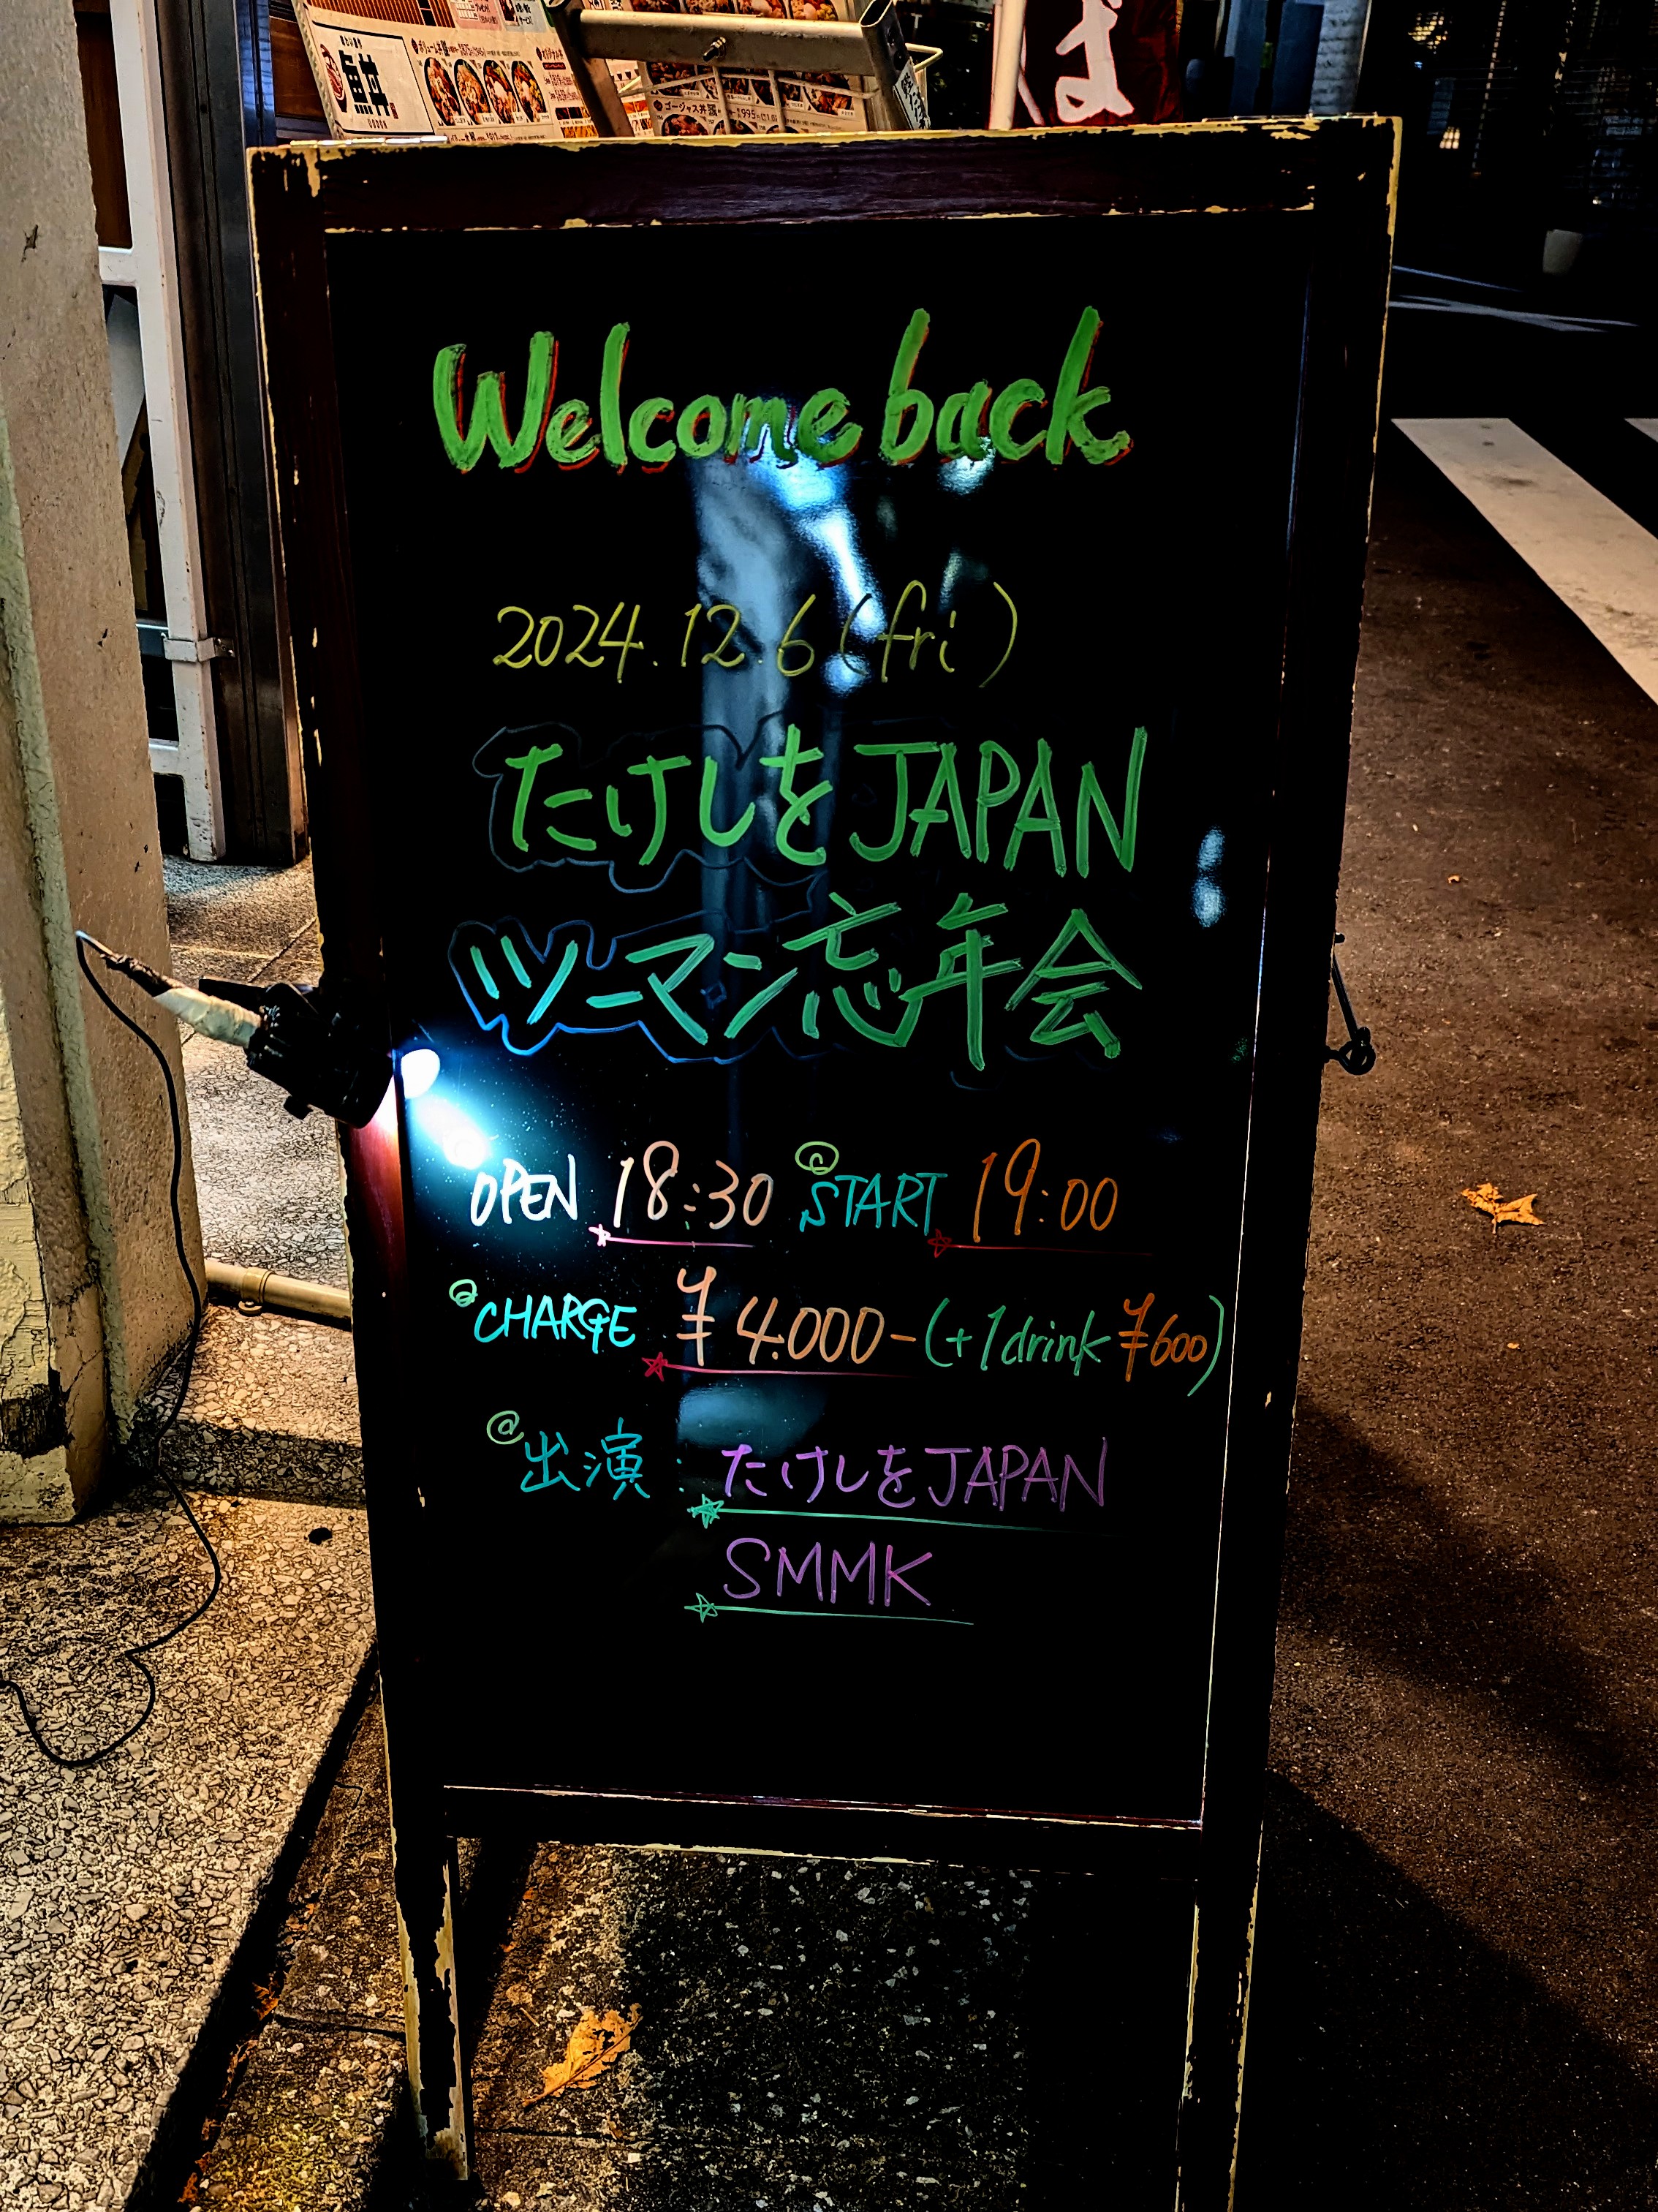 丼
ゴージャス丼
¥995
ば
Welcome back
2024.12.6(fri)
たけしをJAPAN
ツーマン忘年会
OPEN 18:30 @START 19:00
@CHARGE ¥4.000-(+1drink ¥600)
@出演:たけしをJAPAN
SMMK